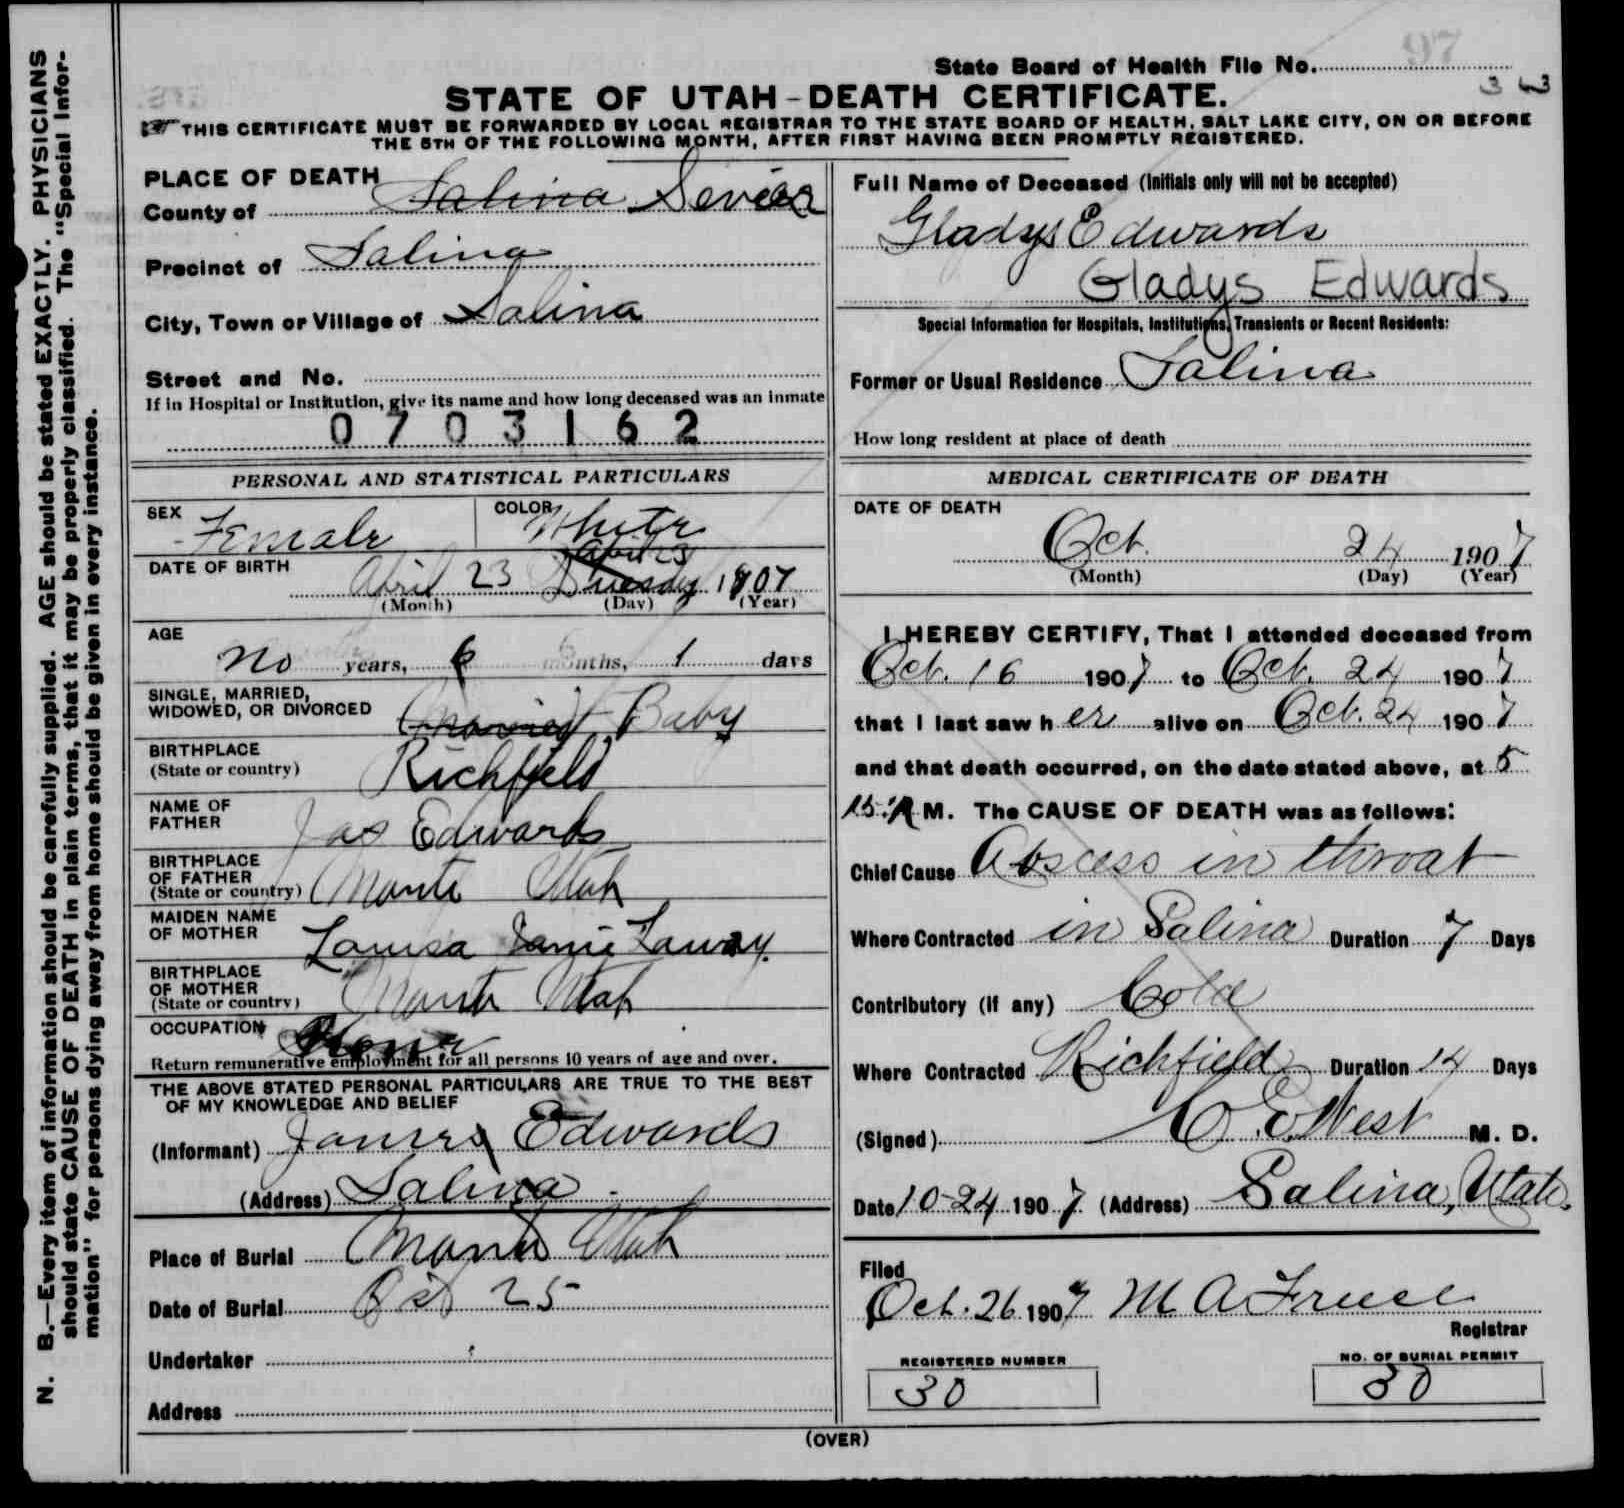 97
State Board of Health File No.
3 43
STATE OF UTAH-DEATH CERTIFICATE.
THIS CERTIFICATE MUST BE FORWARDED BY LOCAL REGISTRAR TO THE STATE BOARD OF HEALTH, SALT LAKE CITY, ON OR BEFORE
THE 5TH OF THE FOLLOWING MONTH, AFTER FIRST HAVING BEEN PROMPTLY REGISTERED.
PLACE OF DEATH
County of Salina Sevier
Precinct of Salina
City, Town or Village of Salina
Street and No.
If in Hospital or Institution, give its name and how long deceased was an inmate
0703162
Full Name of Deceased (Initials only will not be accepted)
Gladys Edwards
Gladys Edwards
Special Information for Hospitals, Institutions, Transients or Recent Residents:
Former or Usual Residence Salina
How long resident at place of death
PERSONAL AND STATISTICAL PARTICULARS
SEX Female COLOR White
April 23
DATE OF BIRTH April 23 Tuesday 1907
(Month) (Day) (Year)
AGE
No years, 6 months, 1 days
SINGLE, MARRIED,
WIDOWED, OR DIVORCED Married Baby
BIRTHPLACE
(State or country) Richfield
NAME OF
FATHER Jas Edwards
BIRTHPLACE
OF FATHER
(State or country) Manti Utah
MAIDEN NAME
OF MOTHER Louisa Janie
BIRTHPLACE
OF MOTHER
(State or country) Manti Utah
OCCUPATION
Return remunerative employment for all persons 10 years of age and over.
THE ABOVE STATED PERSONAL PARTICULARS ARE TRUE TO THE BEST
OF MY KNOWLEDGE AND BELIEF
(Informant) James Edwards
(Address) Salina
Place of Burial Manti Utah
Date of Burial Oct 25
Undertaker
Address
MEDICAL CERTIFICATE OF DEATH
DATE OF DEATH
Oct. 24 1907
(Month) (Day) (Year)
I HEREBY CERTIFY, That I attended deceased from
Oct. 16 1907 to Oct. 24 1907
that I last saw her alive on Oct. 24 1907
and that death occurred, on the date stated above, at 5
15. A M. The CAUSE OF DEATH was as follows:
Chief Cause Abscess in throat
Where Contracted in Salina Duration 7 Days
Contributory (if any) Cold
Where Contracted Richfield Duration 14 Days
(Signed) C. E. West M. D.
Date 10-24 1907. (Address) Salina, Utah.
Filed
Oct. 26 1907 M A
Registrar
REGISTERED NUMBER
30
NO. OF BURIAL PERMIT
30
(OVER)
N. B.—Every item of information should be carefully supplied. AGE should be stated EXACTLY. PHYSICIANS
should state CAUSE OF DEATH in plain terms, that it may be properly classified. The "Special Infor-
mation" for persons dying away from home should be given in every instance.